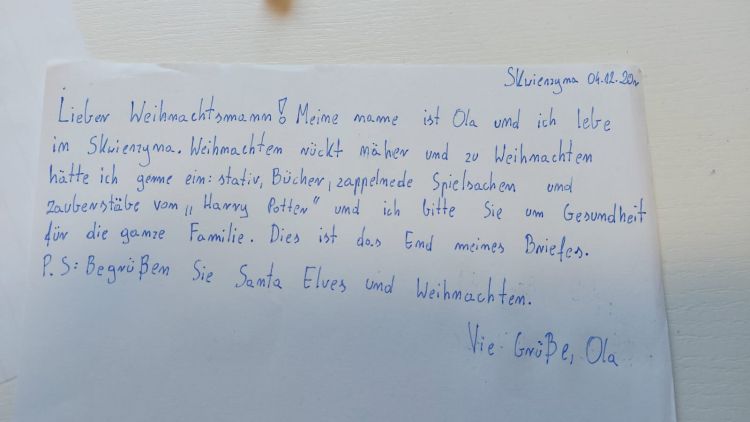 Skwierzyna 04.12.20r
Lieber Weihnachtsmann! Meine name ist Ola und ich lebe
in Skwierzyna. Weihnachten rückt näher und zu Weihnachten
hätte ich gerne ein: stativ, Bücher, zappelnede Spielsachen und
zauberstäbe von „Harry Potter" und ich bitte Sie um Gesundheit
für die ganze Familie. Dies ist das End meines Briefes.
P.S: Begrüßen Sie Santa Elves und Weihnachten.
Vie Grüße, Ola